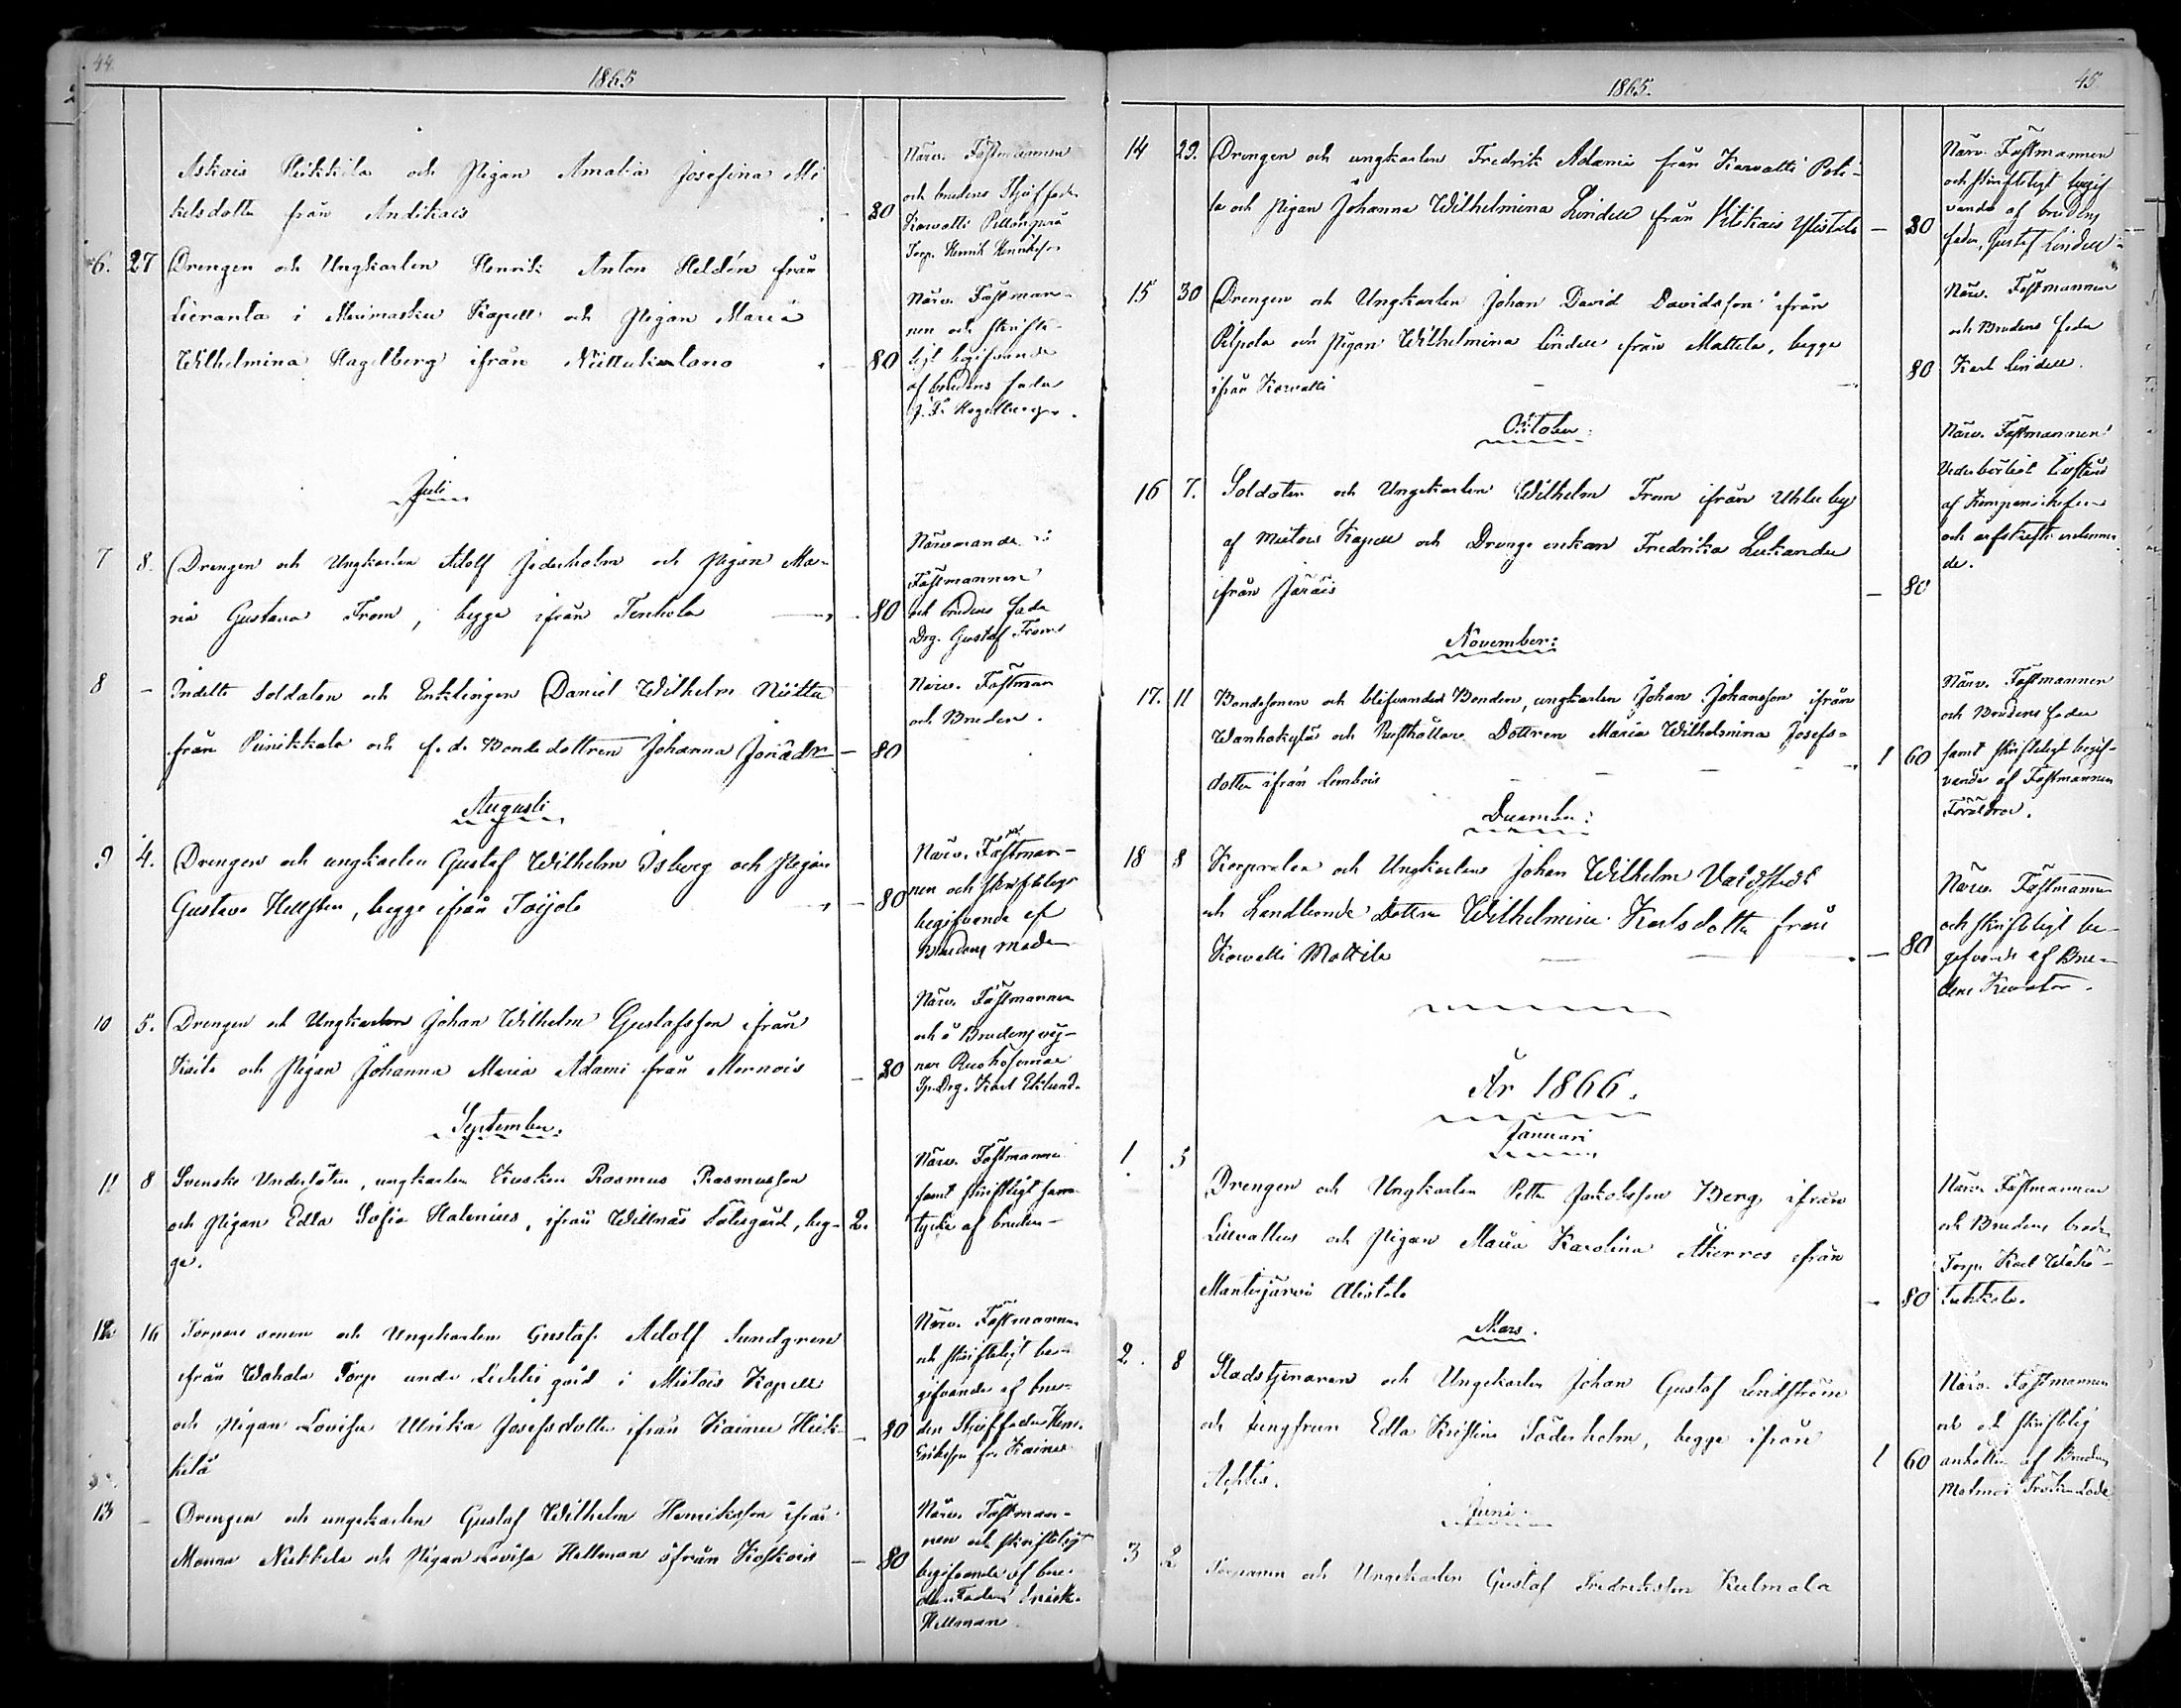 44.
1865
Askais Heikkilä och Pigan Amalia Josefina Mi
kelsdotter från Andikais - 80
Närv. Fästmannen
och brudens Styffader
Karvatti
Torp. Henrik Henriksson
6. 27 Drengen och Ungkarlen Henrik Anton Heldén från
Lieranta i Merimasku Kapell och Pigan Maria
Wilhelmina Hagelberg ifrån Niittukarlano - 80
Närv. Fästman-
nen och skrifte-
ligt begifvande
af brudens fader
J. F. Hagelberg.
Juli
7 8. Drengen och Ungkarlen Adolf Jederholm och Pigan Ma-
ria Gustava From, begge ifrån Tenhola - 80
Närvarande:
Fästmannen
och brudens fader
Drg. Gustaf From
8 - Indelte Soldaten och Enklingen Daniel Wilhelm Niittu
från Piinikkala och f.d. Bonde dottren Johanna Joriadr - 80
Närv. Fästman
och Bruden.
Augusti
9 4. Drengen och ungkarlen Gustaf Wilhelm Isberg och Pigan
Gustava Hellsten, begge ifrån Toijola - 80
Närv. Fästman-
nen och skriftligt
begifvande af
Brudens moder
10 5. Drengen och Ungkarlen Johan Wilhelm Gustafsson ifrån
Kaita och Pigan Johanna Maria Adami från Mernois - 80
Närv. Fästmannen
och å Brudens väg-
nar
Sp. Drg. Karl Eklund.
September.
11 8 Svenske Undersåten, ungkarlen Kusken Rasmus Rasmusson
och Pigan Edla Sofia Halenius, ifrån Willnäs Sätesgård, beg- 2.
ge.
Närv. Fästmannen
samt skriftligt sam-
tycke af bruden-
12 16 Torpare sonen och Ungekarlen Gustaf Adolf Sundgren
ifrån Wahala Torp under Lechtis gård i Mietois Kapell
och Pigan Lovisa Ulrika Josefsdotter ifrån Kainu Heik- - 80
kilä
Närv. Fästmannen
och skriftligt be-
gifvande af bru-
dens Styffader Henr.
Eriksson fr. Kainu
13 - Drengen och ungekarlen Gustaf Wilhelm Henriksson ifrån
Monna Nickkela och Pigan Lovisa Hellman ifrån Koskois - 80
Närv. Fästman-
nen och skriftligt
begifvande af bru-
dens Fader
Hellman
1865.
45.
14 29. Drengen och ungkarlen Fredrik Adamis från Karvatti Poli-
la och Pigan Johanna Wilhelmina Lindell från Kiskais Ylistalo - 80
Närv. Fästmannen
och skriftligt begif
vande af brudens
fader, Gustaf Lindell
15 30 Drengen och Ungkarlen Johan David Davidsson ifrån
Pilpola och Pigan Wilhelmina Lindell ifrån Mattila, begge
ifrån Karvatti - - 80
Närv. Fästmannen
och Brudens fader
Karl Lindell.
October:
16 7. Soldaten och Ungekarlen Wilhelm From ifrån Uhlu by
af Mietois Kapell och Drenge enkan Fredrika Lukander
ifrån Järäis - 80
Närv. Fästmannen
Vederbörligt tillstånd
af Kompanichefen
och arfskifte
de.
November:
17. 11 Bondesonen och blifvande Bonden, ungkarlen Johan Johansson ifrån
Wanhakylä och Rusthållare Dottren Maria Wilhelmina Josefs-
dotter ifrån Lembois - - - 1 60
Närv. Fästmannen
och Brudens fader
samt skriftligt begif-
vande af Fästmannen
Föräldrar.
December:
18 8 Korpralen och Ungkarlen Johan Wilhelm Valdstedt
och Landbonde Dottren Wilhelmina Karlsdotter från
Karvatti Mattila - - - 80
Närv. Fästmannen
och skriftligt be-
gifvande af Bru-
dens Kurator.
År 1866.
Januari
1. 5 Drengen och Ungkarlen Petter Jakobsson Berg ifrån
Lillvallen och Pigan Maria Karolina Åkerros ifrån
Mantisjärvi Alistalo - 80
Närv. Fästmannen
och Brudens broder
Torp. Karl
Mars.
2. 8 Stadstjenaren och Ungekarlen Johan Gustaf Lindström
och Jungfrun Edla Kristina Söderholm, begge ifrån
Achtis. 1 60
Närv. Fästmannen
och skriftlig
anhållan af Brudens
Matmor
Juni.
3 2 Torparen och Ungekarlen Gustaf Fredriksson Kulmala